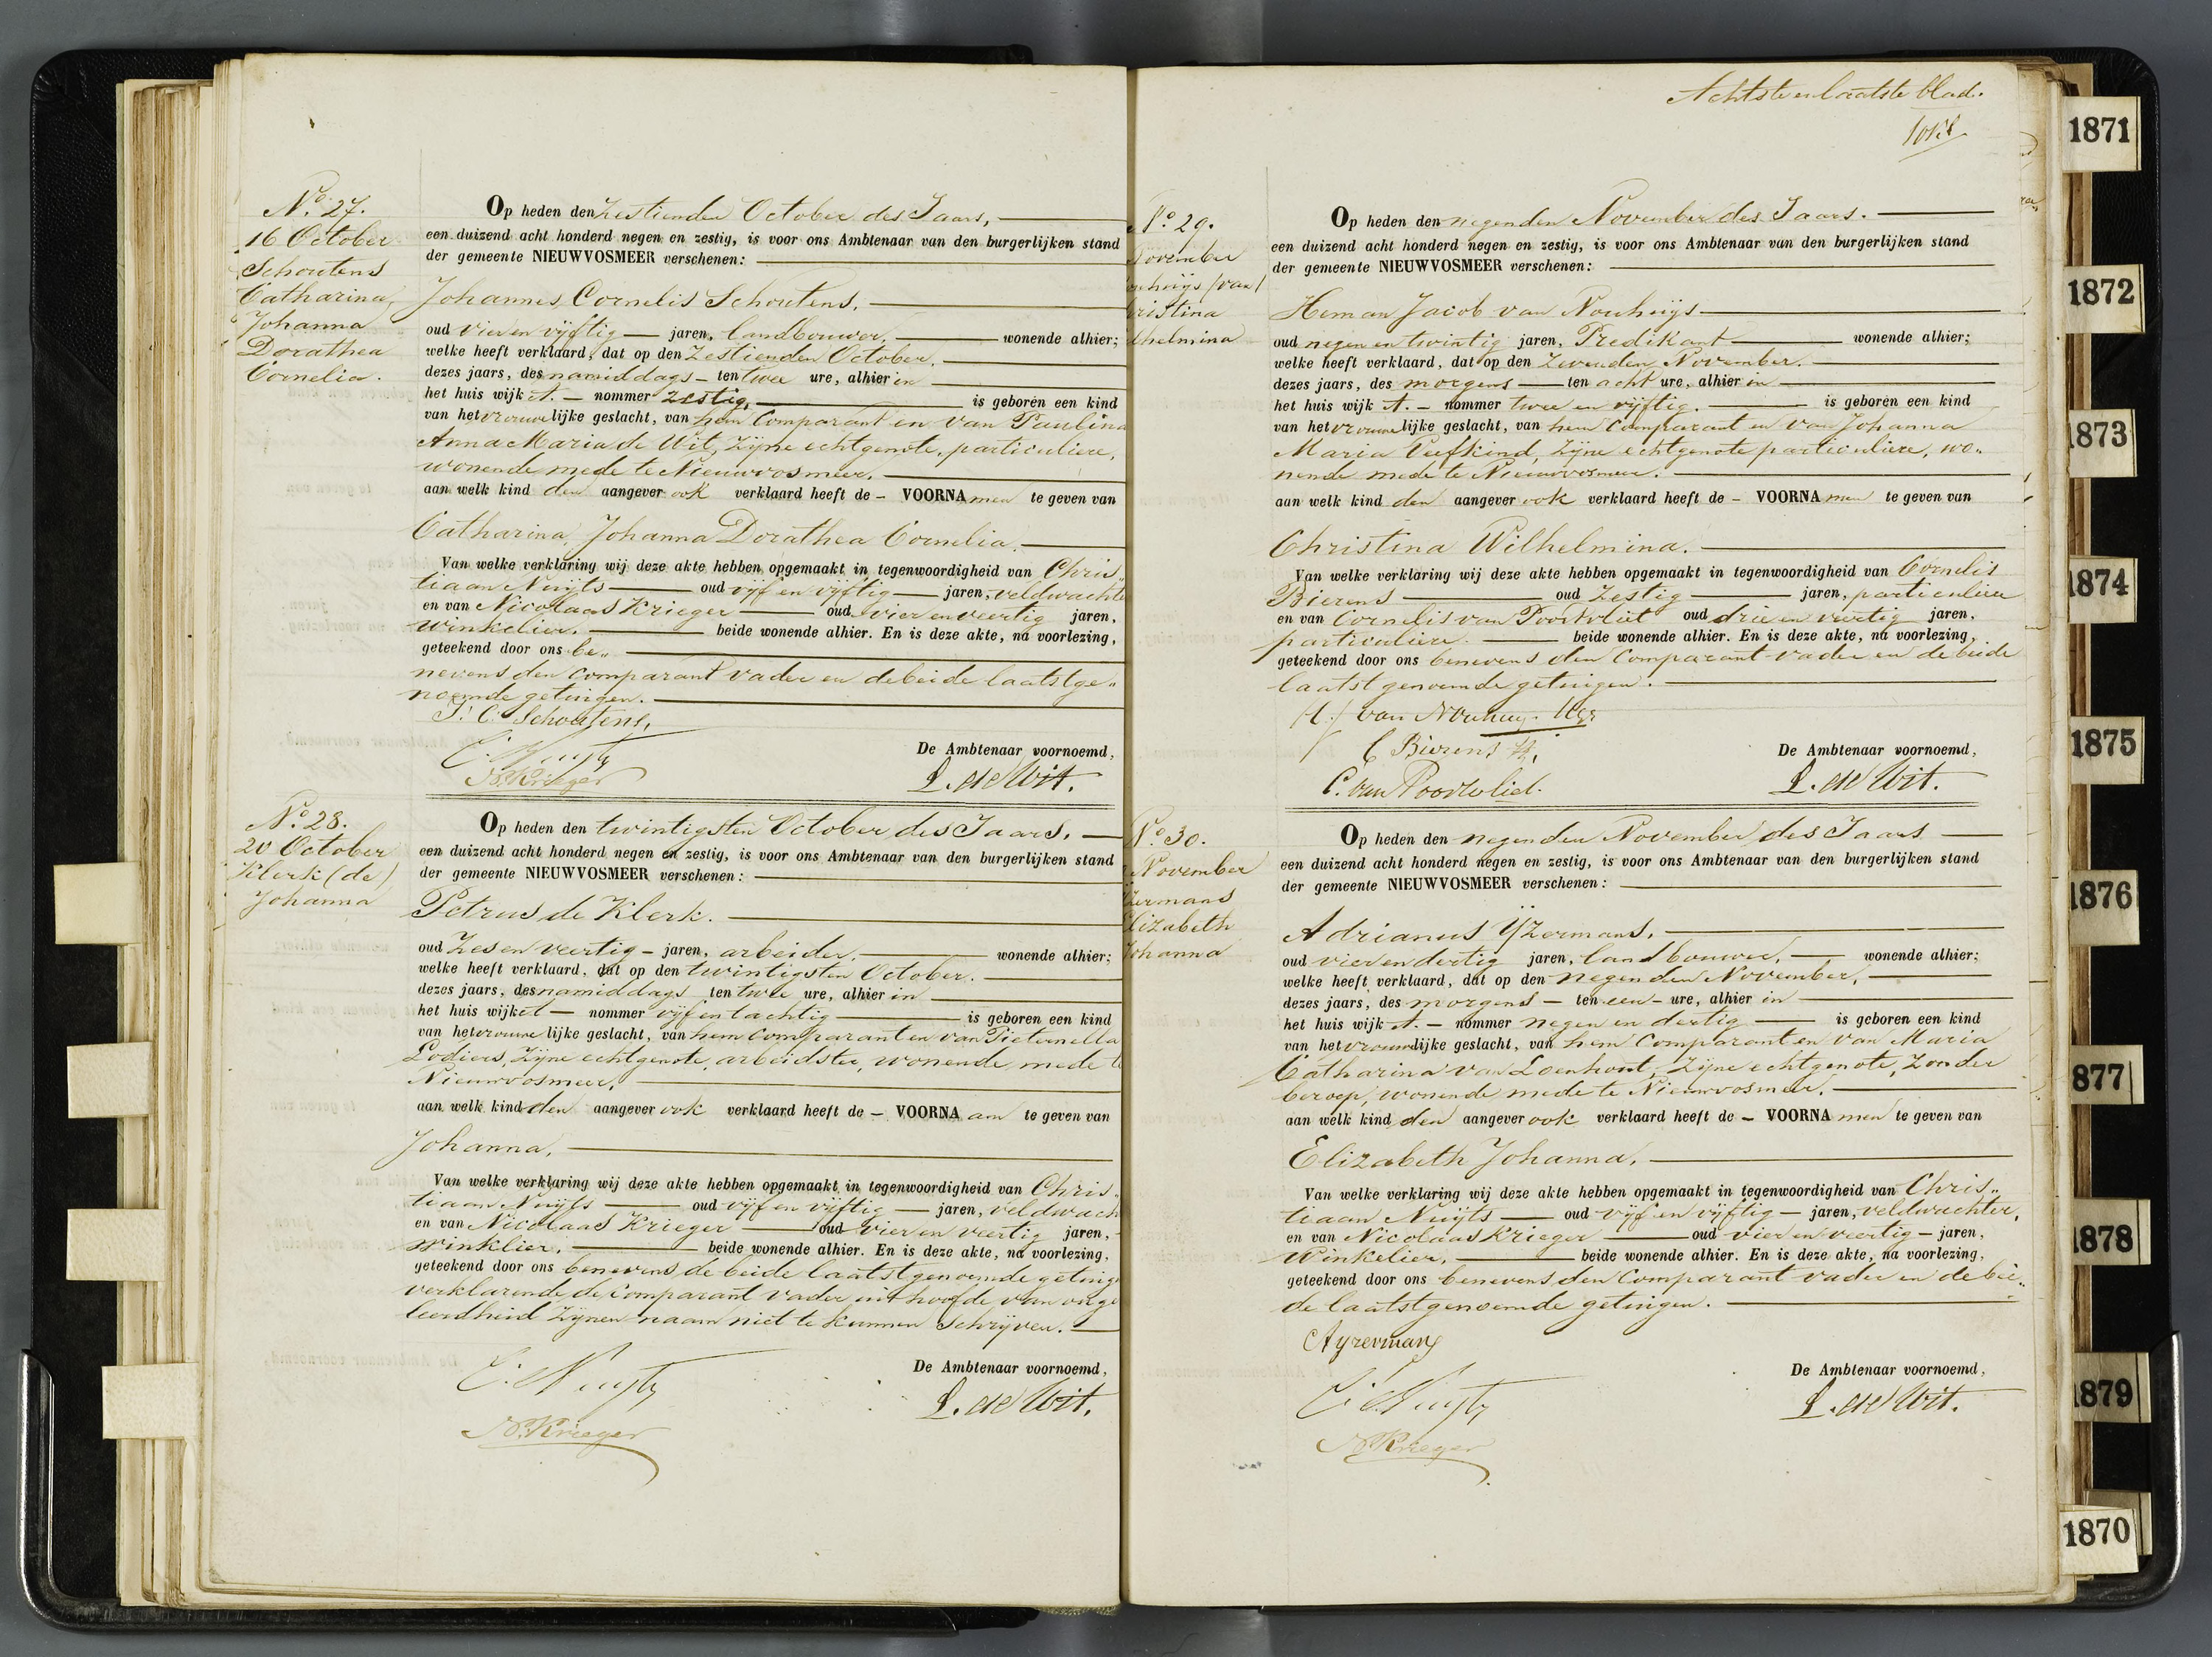 N.o 27.
16 October
Schoutens
Catharina,
Johanna
Dorathea
Cornelia.
Op heden den zestienden October des Jaars,
een duizend acht honderd negen en zestig, is voor ons Ambtenaar van den burgerlijken stand
der gemeente NIEUWVOSMEER verschenen:
Johannes Cornelis Schoutens,
oud vier en vijftig jaren, landbouwer, wonende alhier;
welke heeft verklaard, dat op den zestienden October,
dezes jaars, des namiddags ten twee ure, alhier in
het huis wijk A. nommer zestig, is geboren een kind
van het vrouwelijke geslacht, van hem Comparant en van Paulina
Anna Maria de Wit, zijne echtgenote, particuliere,
wonende mede te Nieuwvosmeer,
aan welk kind den aangever ook verklaard heeft de VOORNAmen te geven van
Catharina, Johanna Dorathea Cornelia,
Van welke verklaring wij deze akte hebben opgemaakt in tegenwoordigheid van Chris„
tiaan Nuijts oud vijf en vijftig jaren, veldwachte
en van Nicolaas Krieger oud vier en veertig jaren,
winkelier, beide wonende alhier. En is deze akte, na voorlezing,
geteekend door ons be„
nevens den Comparant Vader en de beide laatstge„
noemde getuigen.
J. C. Schoutens,
C. Nuyts
N. Krieger
De Ambtenaar voornoemd,
L. de Wit.
N.o 28.
20 October
Klerk (de)
Johanna
Op heden den twintigsten October des Jaars,
een duizend acht honderd negen en zestig, is voor ons Ambtenaar van den burgerlijken stand
der gemeente NIEUWVOSMEER verschenen:
Petrus de Klerk.
oud zes en veertig - jaren, arbeider, wonende alhier;
welke heeft verklaard, dat op den twintigsten October.
dezes jaars, des namiddags ten twee ure, alhier in
het huis wijk A nommer vijf en tachtig is geboren een kind
van het vrouwelijke geslacht, van hem Comparant en van Pieternella
Lodiers, zijne echtgenote, arbeidster, wonende mede te
Nieuwvosmeer,
aan welk kind den aangever ook verklaard heeft de - VOORNAam te geven van
Johanna,
Van welke verklaring wij deze akte hebben opgemaakt in tegenwoordigheid van Chris„
tiaan Nuijts oud vijf en vijftig jaren, veldwach
en van Nicolaas Krieger oud vier en veertig jaren,
Winklier, beide wonende alhier. En is deze akte, na voorlezing,
geteekend door ons benevens de beide laatstgenoemde getuig
verklarende de Comparant vader uit hoofde van onge
leerdheid zijnen naam niet te kunnen schrijven.
C. Nuyts
N. Krieger
De Ambtenaar voornoemd,
L. de Wit.
Achtste en laatste blad.
N.o 29.
November
(van)
ristina
lhelmina
Op heden den negenden November des Jaars.
een duizend acht honderd negen en zestig, is voor ons Ambtenaar van den burgerlijken stand
der gemeente NIEUWVOSMEER verschenen:
Heman Jacob van Nouhuijs
oud negen en twintig jaren, Predikant wonende alhier;
welke heeft verklaard, dat op den Zevenden November.
dezes jaars, des morgens ten acht ure, alhier in
het huis wijk A. - nommer twee en vijftig. is geboren een kind
van het vrouwelijke geslacht, van hem Comparant en van Johanna
Maria Peefkind, zijne echtgenote particuliere, wo„
nende mede te Nieuwvosmeer.
aan welk kind den aangever ook verklaard heeft de - VOORNAmen te geven van
Christina Wilhelmina.
Van welke verklaring wij deze akte hebben opgemaakt in tegenwoordigheid van Cornelis
Bierens oud Zestig jaren, particulier
en van Cornelis van Poortvliet oud drie en veertig jaren,
particuliere. beide wonende alhier. En is deze akte, na voorlezing,
geteekend door ons benevens den Comparant-vader en de beide
laatst genoemde getuigen.
H. J van Nouhuys.
C Bierens
C. van Poortvliet.
De Ambtenaar voornoemd,
L. de Wit.
N.o 30.
November
IJzermans
Elizabeth
Johanna
Op heden den negenden November des Jaars
een duizend acht honderd negen en zestig, is voor ons Ambtenaar van den burgerlijken stand
der gemeente NIEUWVOSMEER verschenen:
Adrianus IJzermans,
oud vier en dertig jaren, landbouwer, wonende alhier;
welke heeft verklaard, dat op den negenden November,
dezes jaars, des morgens - ten een - ure, alhier in
het huis wijk A. - nommer negen en dertig is geboren een kind
van het vrouwelijke geslacht, van hem Comparant en van Maria
Catharina van Loenhout, zijne echtgenote, zonder
beroep, wonende mede te Nieuwvosmeer.
aan welk kind den aangever ook verklaard heeft de - VOORNAmen te geven van
Elizabeth Johanna,
Van welke verklaring wij deze akte hebben opgemaakt in tegenwoordigheid van Chris„
tiaan Nuijts oud vijf en vijftig - jaren, veldwachter,
en van Nicolaas Krieger oud vier en veertig - jaren,
Winkelier, beide wonende alhier. En is deze akte, na voorlezing,
geteekend door ons benevens den Comparant vader en de bei„
de laatstgenoemde getuigen.
AYzermans
C. Nuyts
N Krieger
De Ambtenaar voornoemd,
L. de Wit.
1871
1872
1873
1874
1875
1876
1877
1878
1879
1870